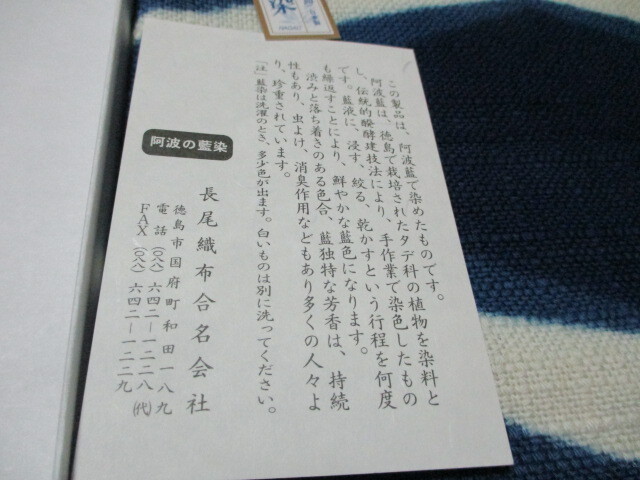 染
この製品は、阿波藍で染めたものです。
阿波藍は、徳島で栽培されたタデ科の植物を染料と
し、伝統的醗酵建技法により、手作業で染色したもの
です。藍液に、浸す、絞る、乾かすという行程を何度
も繰返すことにより、鮮やかな藍色になります。
渋みと落ち着きのある色合、藍独特な芳香は、持続
性もあり、虫よけ、消臭作用などもあり多くの人々よ
り、珍重されています。
「注」藍染は洗濯のとき、多少色が出ます。白いものは別に洗ってください。
阿波の藍染
長尾織布合名会社
徳島市国府町和田一八九
電話(〇八八)六四二―一二二八(代)
FAX(〇八八)六四二―一二二九